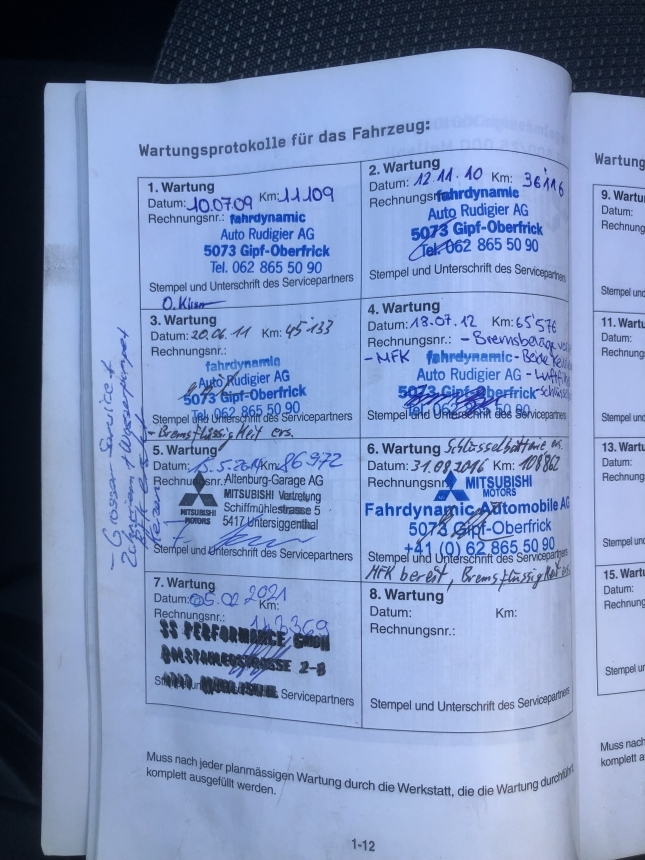 Wartungsprotokolle für das Fahrzeug:
1. Wartung
Datum: 10.07.09 Km: 11109
Rechnungsnr.: fahrdynamic
Auto Rudigier AG
5073 Gipf-Oberfrick
Tel. 062 865 50 90
Stempel und Unterschrift des Servicepartners
2. Wartung
Datum: 12.11.10 Km: 36'116
Rechnungsnr fahrdynamic
Auto Rudigier AG
5073 Gipf-Oberfrick
Tel. 062 865 50 90
Stempel und Unterschrift des Servicepartners
3. Wartung
Datum: 20.06.11 Km: 45'133
Rechnungsnr.:
fahrdynamic
Auto Rudigier AG
5073 Gipf-Oberfrick
Tel. 062 865 50 90
Stempel und Unterschrift des Servicepartners
- Bremsflüssigkeit ers.
4. Wartung
Datum: 18.07.12 Km: 65'576
Rechnungsnr.: - Bremsbeläge
- MFK fahrdynamic
Auto Rudigier AG
5073 Gipf-Oberfrick
Tel. 062 865 50 90
Stempel und Unterschrift des Servicepartners
- Grosser Service +
5. Wartung
Datum: 15.5.2014 Km: 86972
Rechnungsnr. Altenburg-Garage AG
MITSUBISHI Vertretung
Schiffmühlestrasse 5
5417 Untersiggenthal
MITSUBISHI
MOTORS
Stempel und Unterschrift des Servicepartners
6. Wartung Schlüsselbatterie ers.
Datum: 31.08.2016 Km: 108862
Rechnungsnr.: MITSUBISHI
MOTORS
Fahrdynamic Automobile AG
5073 Gipf-Oberfrick
+41 (0) 62 865 50 90
Stempel und Unterschrift des Servicepartners
MFK bereit, Bremsflüssigkeit ers.
7. Wartung
Datum: 05.02.2021 Km:
Rechnungsnr.: 143369
SS PERFORMANCE GMBH
2-8
Servicepartners
8. Wartung
Datum: Km:
Rechnungsnr.:
Stempel und Unterschrift des Servicepartners
Muss nach jeder planmässigen Wartung durch die Werkstatt, die die Wartung durchführt
komplett ausgefüllt werden.
1-12
Wartung
9. Wartu
Datum:
Rechnung
Stempel und
11. Wart
Datum:
Rechnung
Stempel und
13. Wart
Datum:
Rechnung
Stempel un
15. Wart
Datum:
Rechnung
Stempel u
Muss nach
komplett a